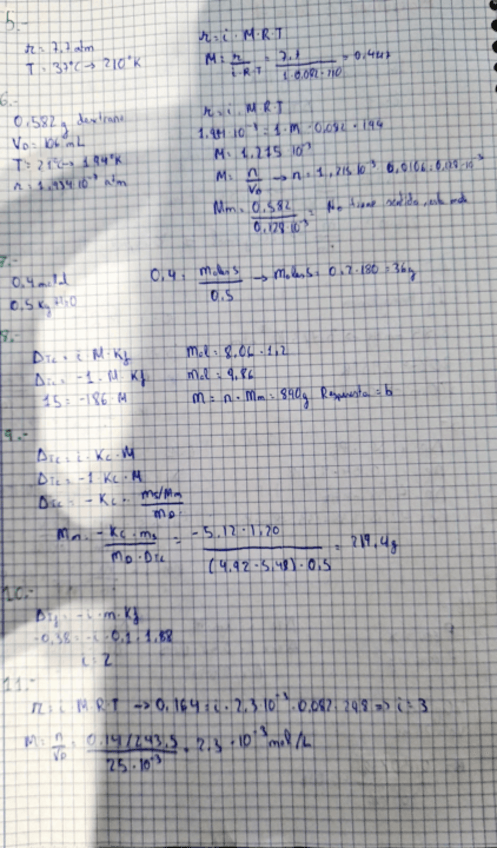 5.-
π = 7,7 atm
T = 37°C → 210°K
π = i · M · R · T
M = π / i·R·T = 7,7 / 1·0.082·210
6.-
0,582 g dextrano
V₀ = 106 mL
T = 21°C → 194°K
π = 1,934·10⁻³ atm
π = i · M · R · T
1.934·10⁻³ = 1 · M · 0,082 · 194
M = 1,215 · 10⁻³
M = n / V₀ → n = 1,215·10⁻³ · 0,0106 = 0,128·10⁻³
Mm = 0,582 / 0,128·10⁻³ = No tiene sentido
7.-
0,4 molal
0.5 Kg H₂O
0,4 = moles S / 0,5 → moles S = 0.2·180 = 36g
8.-
ΔTc = i · M · Kf
ΔTc = -1 · M · Kf
15 = -1,86 · M
Mol = 8,06 · 1,2
Mol = 9,86
m = n · Mm = 890g Respuesta = b
9.-
ΔTc = i · Kc · M
ΔTc = -1 · Kc · M
ΔTc = - Kc · ms/Mm / mD
Mm = -Kc · ms / mD · ΔTc = -5,12 · 1,20 / (4,92 - 5,48) · 0,5 = 219,4g
10.-
ΔTf = -i · m · Kf
-0,38 = -i · 0,1 · 1,88
i = 2
11.-
π = i · M · R · T → 0,164 = i · 2,3·10⁻³ · 0.082 · 298 => i = 3
M = n / V₀ = 0,14/243,5 / 25·10⁻³ = 2,3 · 10⁻³ mol/L